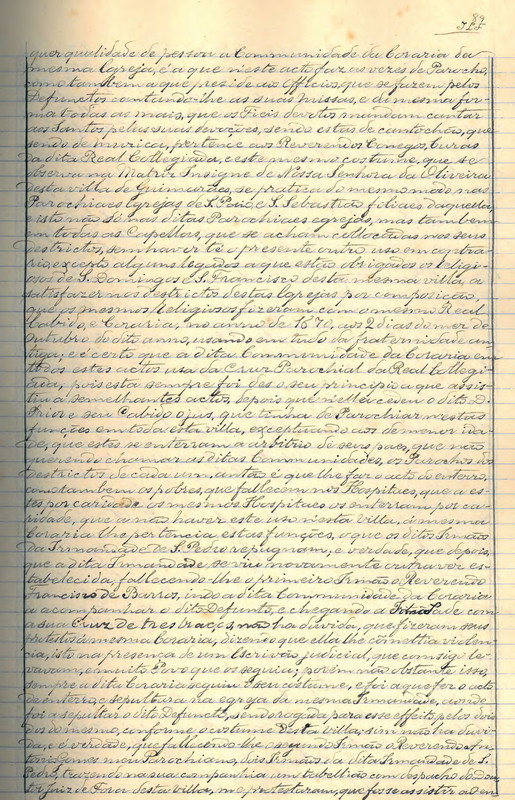 89
quer qualidade de pessoa a Communidade da Coraria da
mesma Egreja, é a que neste acto faz as vezes de Parocho,
como tambem a que preside aos Officios, que se fazem pelos
Defunctos cantando-lhe as suas missas, e da mesma for-
ma todas as mais, que os Fieis devotos mandam cantar
aos Santos pelas suas devoções, sendo estas de cantochão, que
sendo de muzica, pertence aos Reverendos Conegos Curas
da dita Real Collegiada, e este mesmo costume, que se
observa na Matriz Insigne de Nossa Senhora da Oliveira
desta villa de Guimarães, se pratica do mesmo modo nas
Parochiaes Egrejas de S. Paio, e S. Sebastião filiaes daquella,
e isto não só nas ditas Parochiaes egrejas, mas tambem
em todas as Capellas, que se acham collocadas nos seus
destrictos, sem haver té o presente outro uso em contra-
rio, excepto alguns legados a que estão obrigados os Religi-
osos de S. Domingos e S. Francisco desta mesma villa, a
satisfazer nos destrictos destas Egrejas por composição,
que os mesmos Religiosos fizeram com o mesmo Real
Cabido, e Coraria, no anno de 1670, aos 2 dias do mez de
Outubro do dito anno, usando em tudo da fraternidade an-
tiga; e é certo que a dita Communidade da Coraria em
todos estes actos usa da Cruz Parochial da Real Collegi-
ada, pois esta sempre foi des o seu principio a que assis-
tiu a semelhantes actos, depois que nella cedeu o dito D.
Prior e seu Cabido o jus, que tinha de Parochiar nestas
funções em toda esta villa, exceptuando aos de menor ida-
de, que estes se enterram a arbitrio de seus paes, que não
querendo chamar as ditas Communidades, os Parochos nos
destrictos de cada um, então é que lhe faz o acto do enterro,
como tambem os pobres, que fallecem nos Hospitaes, que a es-
tes por caridade os mesmos Hospitaes os enterram, por ca-
ridade, que a não haver este uso nesta villa, á mesma
Coraria lhe pertencia estas funções, o que os ditos Irmãos
da Irmandade de S. Pedro repugnam; e verdade, que depois,
que a dita Irmandade se viu novamente outra vez es-
tabelecida, fallecendo-lhe o primeiro Irmão o Reverendo
Francisco de Barros, indo a dita Communidade da Coraria
a acompanhar o dito Defunto, e chegando a Irmandade com
a sua Cruz de tres braços, não ha duvida, que fizeram seus
protestos á mesma Coraria, dizendo que ella lhe comettia violen-
cia, isto na presença de um Escrivão judicial, que comsigo le-
vavam, e muito Povo que os seguiu; porém não obstante isso,
sempre a dita Coraria seguiu o seu costume, e foi a que fez o acto
do enterro, e sepultura na egreja da mesma Irmandade, aonde
foi a sepultar o dito Defuncto, sendo rogada para esse effeito pelos dois
dos do mesmo, conforme o costume desta villa; sim não ha duvi-
da, e é verdade, que fallecendo-lhe o segundo Irmão o Reverendo An-
tonio Gomes meu Parochiano, dois Irmãos da dita Irmandade de S.
Pedro, trazendo na sua companhia um tabellião com despacho do Dou-
tor Juiz de Fóra desta villa, me protestaram, que fosse assistir ao en-